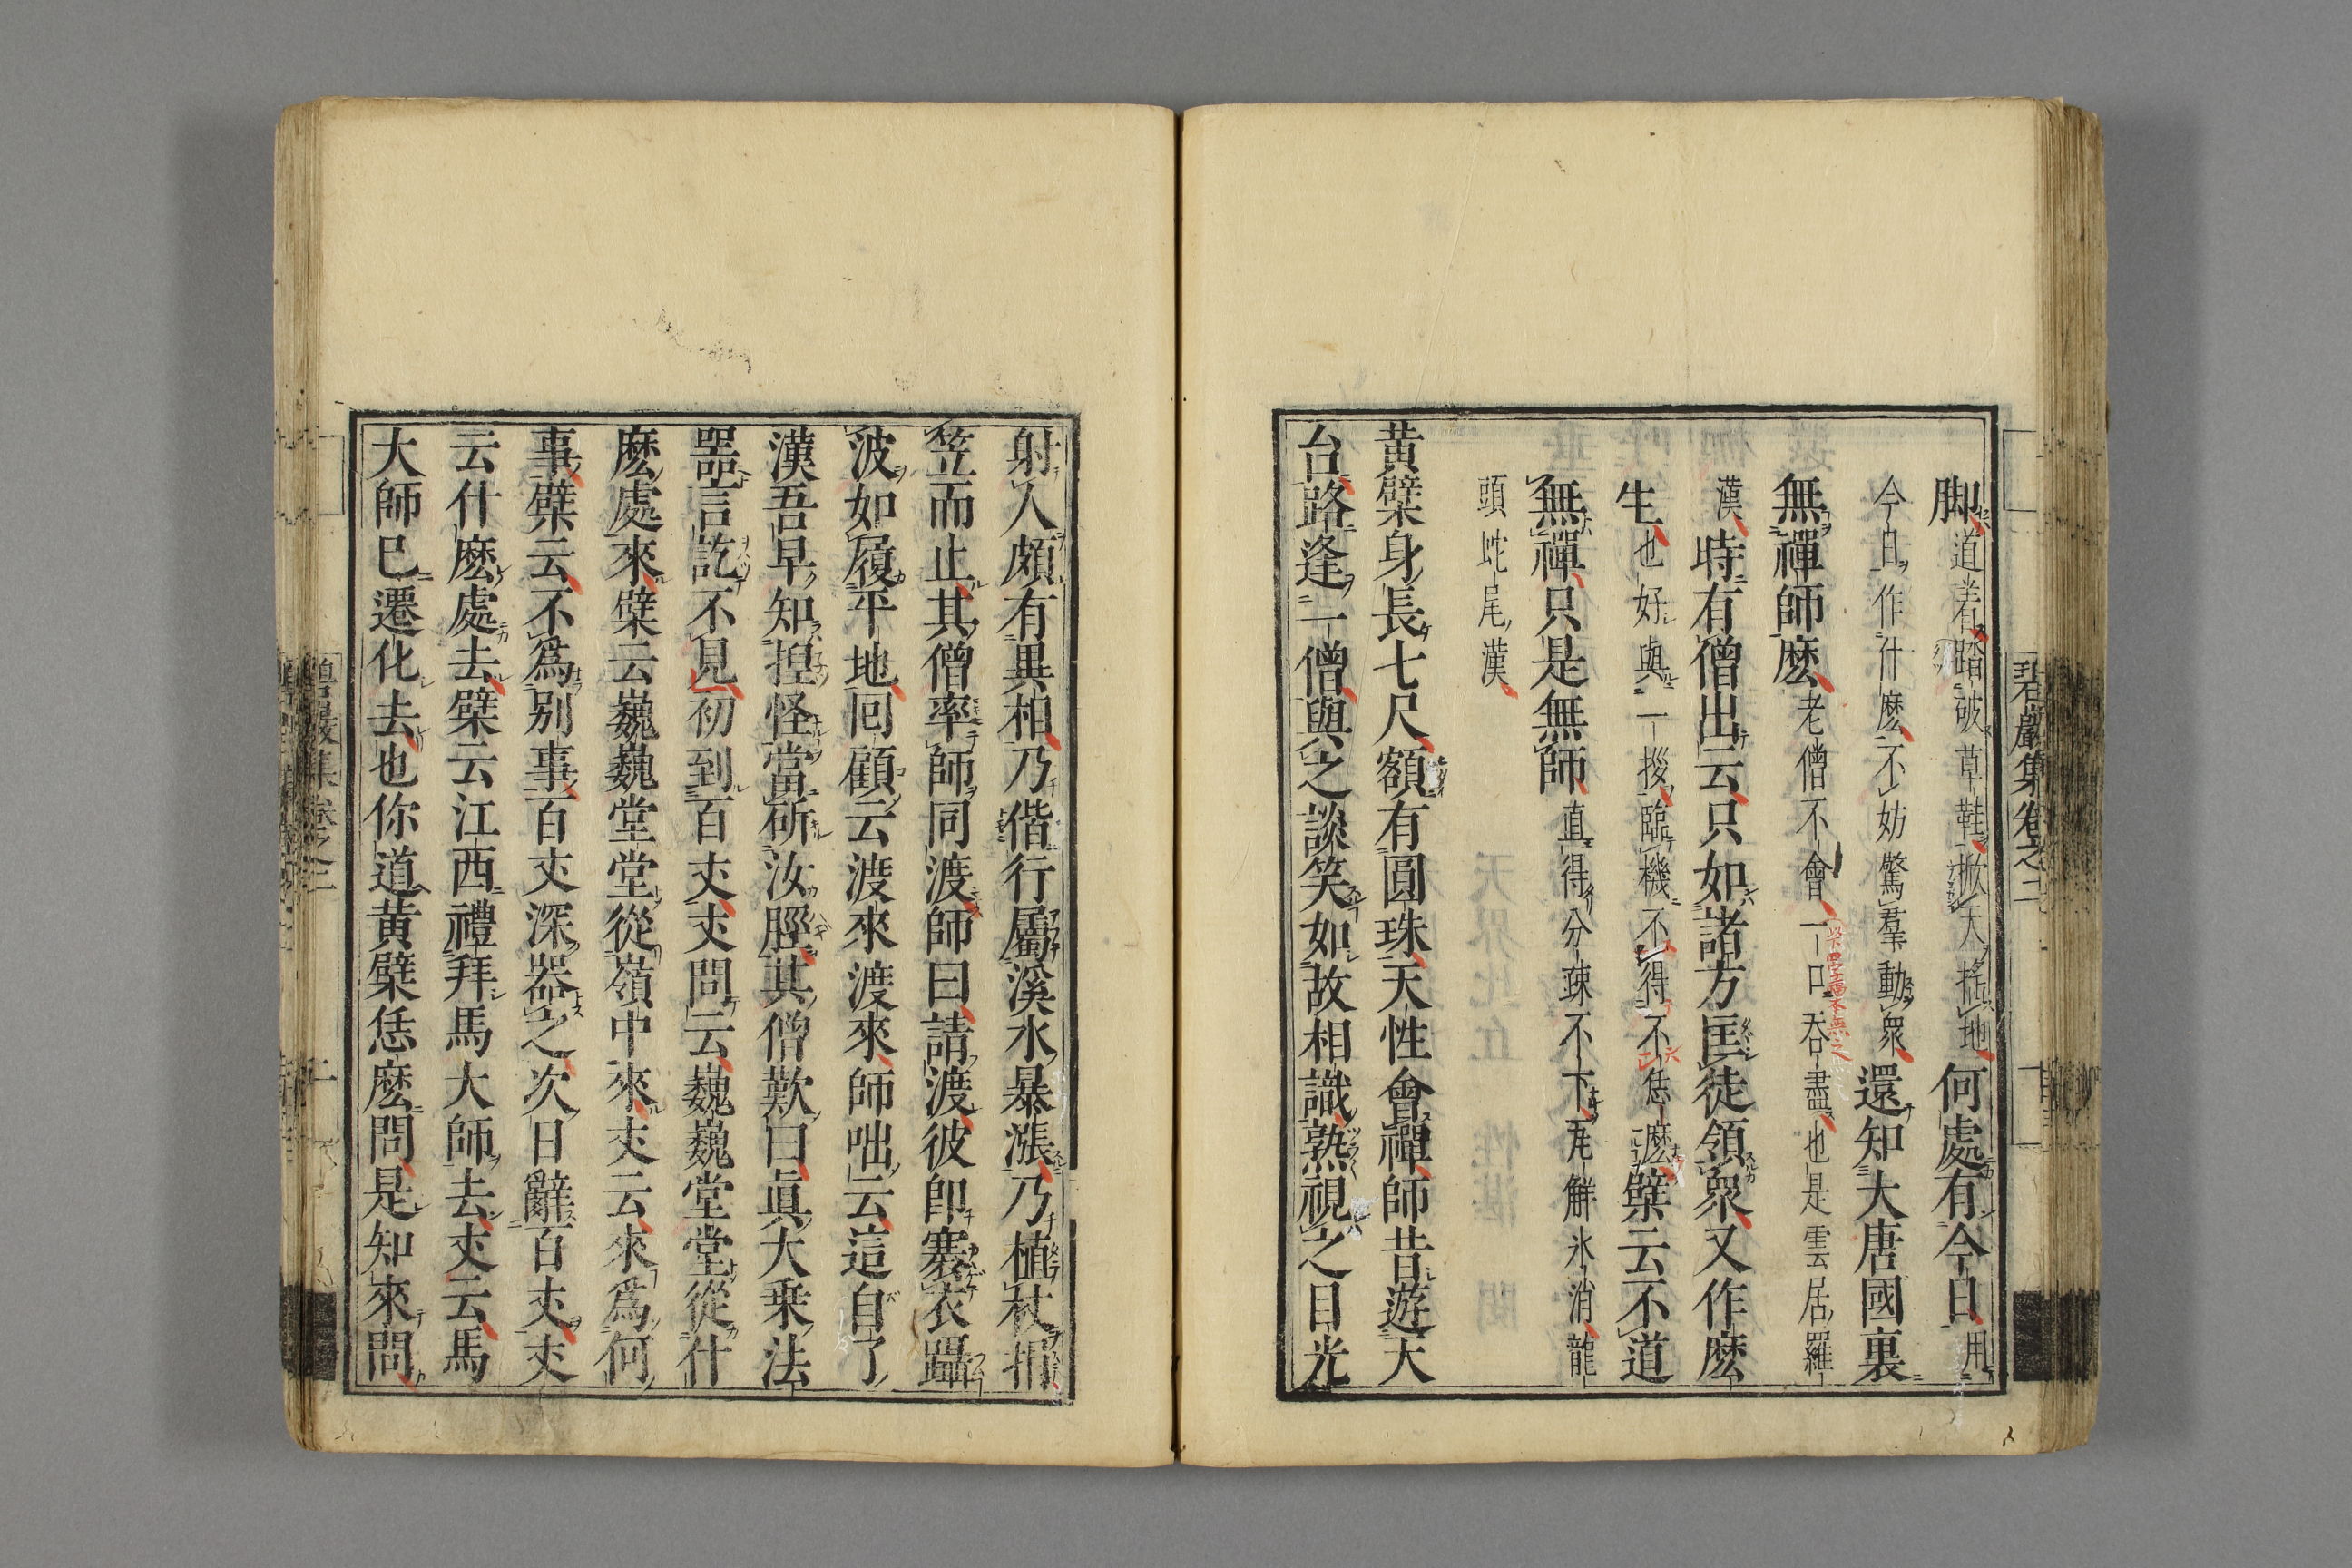 脚道着踏破草鞋掀天搖地何處有今日用
今日作什麽不妨驚羣動衆還知大唐國裏
無禪師麽老僧不會一口吞盡也是雲居羅
漢時有僧出云只如諸方匡徒領衆又作麽
生也好與一拶臨機不得不恁麽檗云不道
無禪只是無師直得分疎不下瓦解氷消龍
頭虵尾漢
黃檗身長七尺額有圓珠天性會禪師昔遊天
台路逢一僧與之談笑如故相識熟視之目光
射人頗有異相乃偕行屬溪水暴漲乃植杖捐
笠而止其僧率師同渡師曰請渡彼卽褰衣躡
波如履平地回顧云渡來渡來師咄云這自了
漢吾早知揑怪當斫汝脛其僧歎曰眞大乗法
器言訖不見初到百丈丈問云巍巍堂堂從什
麽處來檗云巍巍堂堂從嶺中來丈云來爲何
事檗云不爲别事百丈深器之次日辭百丈丈
云什麽處去檗云江西禮拜馬大師去丈云馬
大師已遷化去也你道黃檗恁麽問是知來問
碧巖集卷之二
碧巖集卷之二